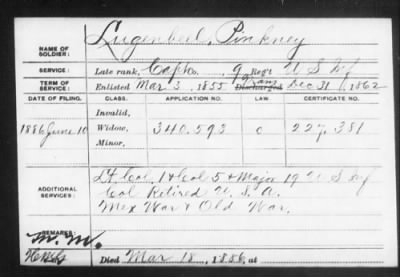 NAME OF SOLDIER: Lugenbeel, Pinkney
SERVICE: Late rank, Capt Co. 9 Reg't U S Inf
TERM OF SERVICE: Enlisted Mar 3, 1855 Discharged Trans Dec 31, 1862
DATE OF FILING. CLASS. APPLICATION NO. LAW CERTIFICATE NO.
Invalid,
1886 June 10 Widow, 340.593 C 227.381
Minor,
Lt Col. 1 & Col 5 & Major 19 U S Inf
ADDITIONAL SERVICES: Col Retired U. S. A.
Mex War & Old War.
REMARKS:
Died Mar 18, 1886, at